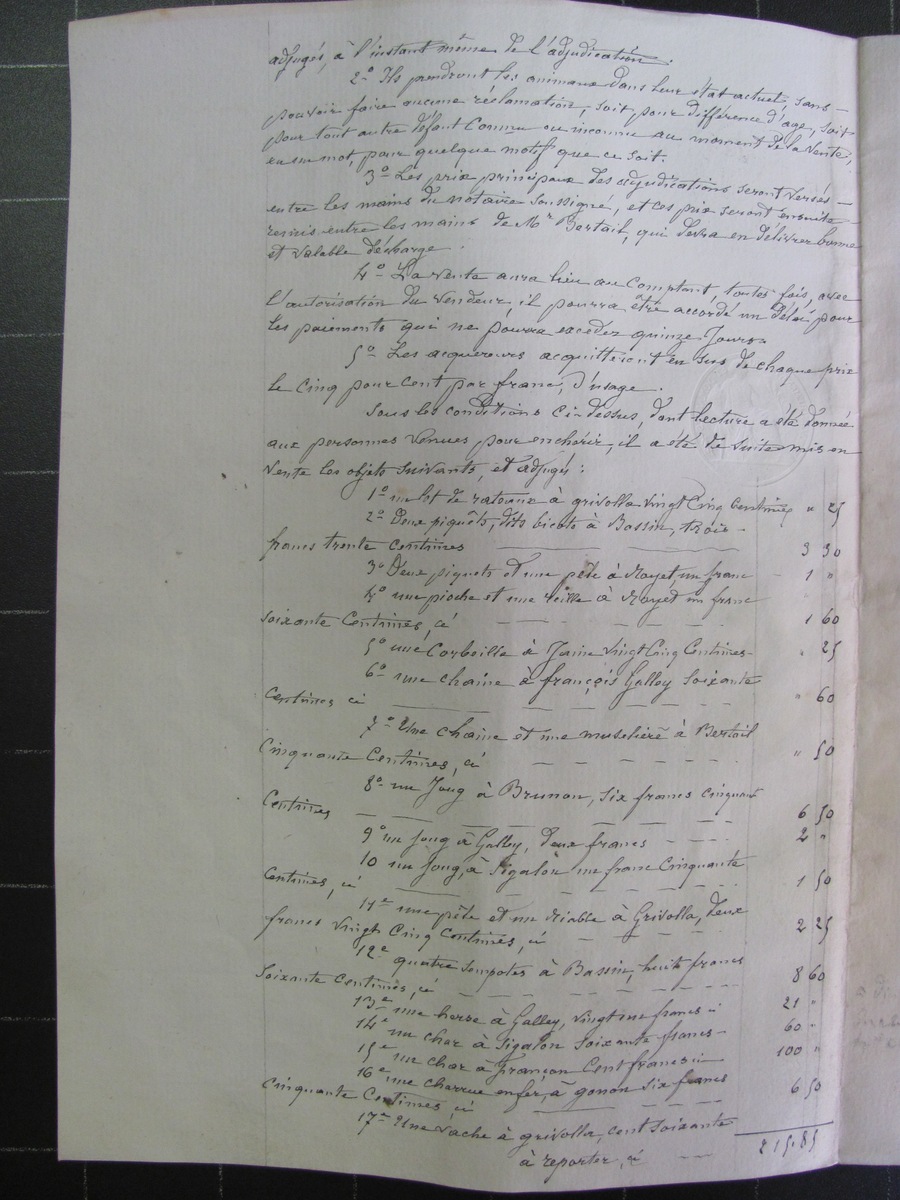 adjugés, à l'instant même de l'adjudication.
2º Ils prendront les animaux dans leur état actuel, sans
pouvoir faire aucune réclamation, soit pour différence d'age, soit
pour tout autre défaut connu ou inconnu au moment de la vente,
en un mot, pour quelque motif que ce soit.
3º Les prix principaux des adjudications seront versés
entre les mains du notaire soussigné, et ces prix seront ensuite
remis entre les mains de Mr Bertail, qui devra en délivrer bonne
et valable décharge.
4º La vente aura lieu au comptant, toutes fois, avec
l'autorisation du vendeur, il pourra être accordé un délai pour
les paiements qui ne pourra excéder quinze jours.
5º Les acquéreurs acquitteront en sus de chaque prix
le cinq pour cent par franc, d'usage.
Sous les conditions ci-dessus, dont lecture a été donnée
aux personnes venues pour enchérir, il a été de suite mis en
vente les objets suivants, et adjugé :
1º un lot de rateaux à grivolla vingt cinq centimes " 25
2º Deux piquets, dits bicots à Bassin, trois
francs trente centimes 3 30
3º Deux piquets et une pèle à Royet, un franc 1 "
4º une pioche et une reille à Royet un franc
soixante centimes, ci 1 60
5º une corbeille à Janin vingt cinq centimes " 25
6º une chaine à françois Galley soixante
centimes ci " 60
7º Une chaine et une muselière à Bertail
cinquante centimes, ci " 50
8º un joug à Brunon, six francs cinquante
centimes 6 50
9º un joug à Galley, deux francs 2 "
10 un joug, à Sigalon un franc cinquante
centimes, ci 1 50
11e une pèle et un diable à Grivolla, deux
francs vingt cinq centimes, ci 2 25
12e quatre sompotes à Bassin, huit francs
soixante centimes, ci 8 60
13e une herse à Galley, vingt un francs 21 "
14e un char à Sigalon soixante francs 60 "
15e un char à françon cent francs 100 "
16e une charrue enfer, à gonon six francs
cinquante centimes, ci 6 50
17e Une vache à grivolla, cent soixante
à reporter, ci 215.85